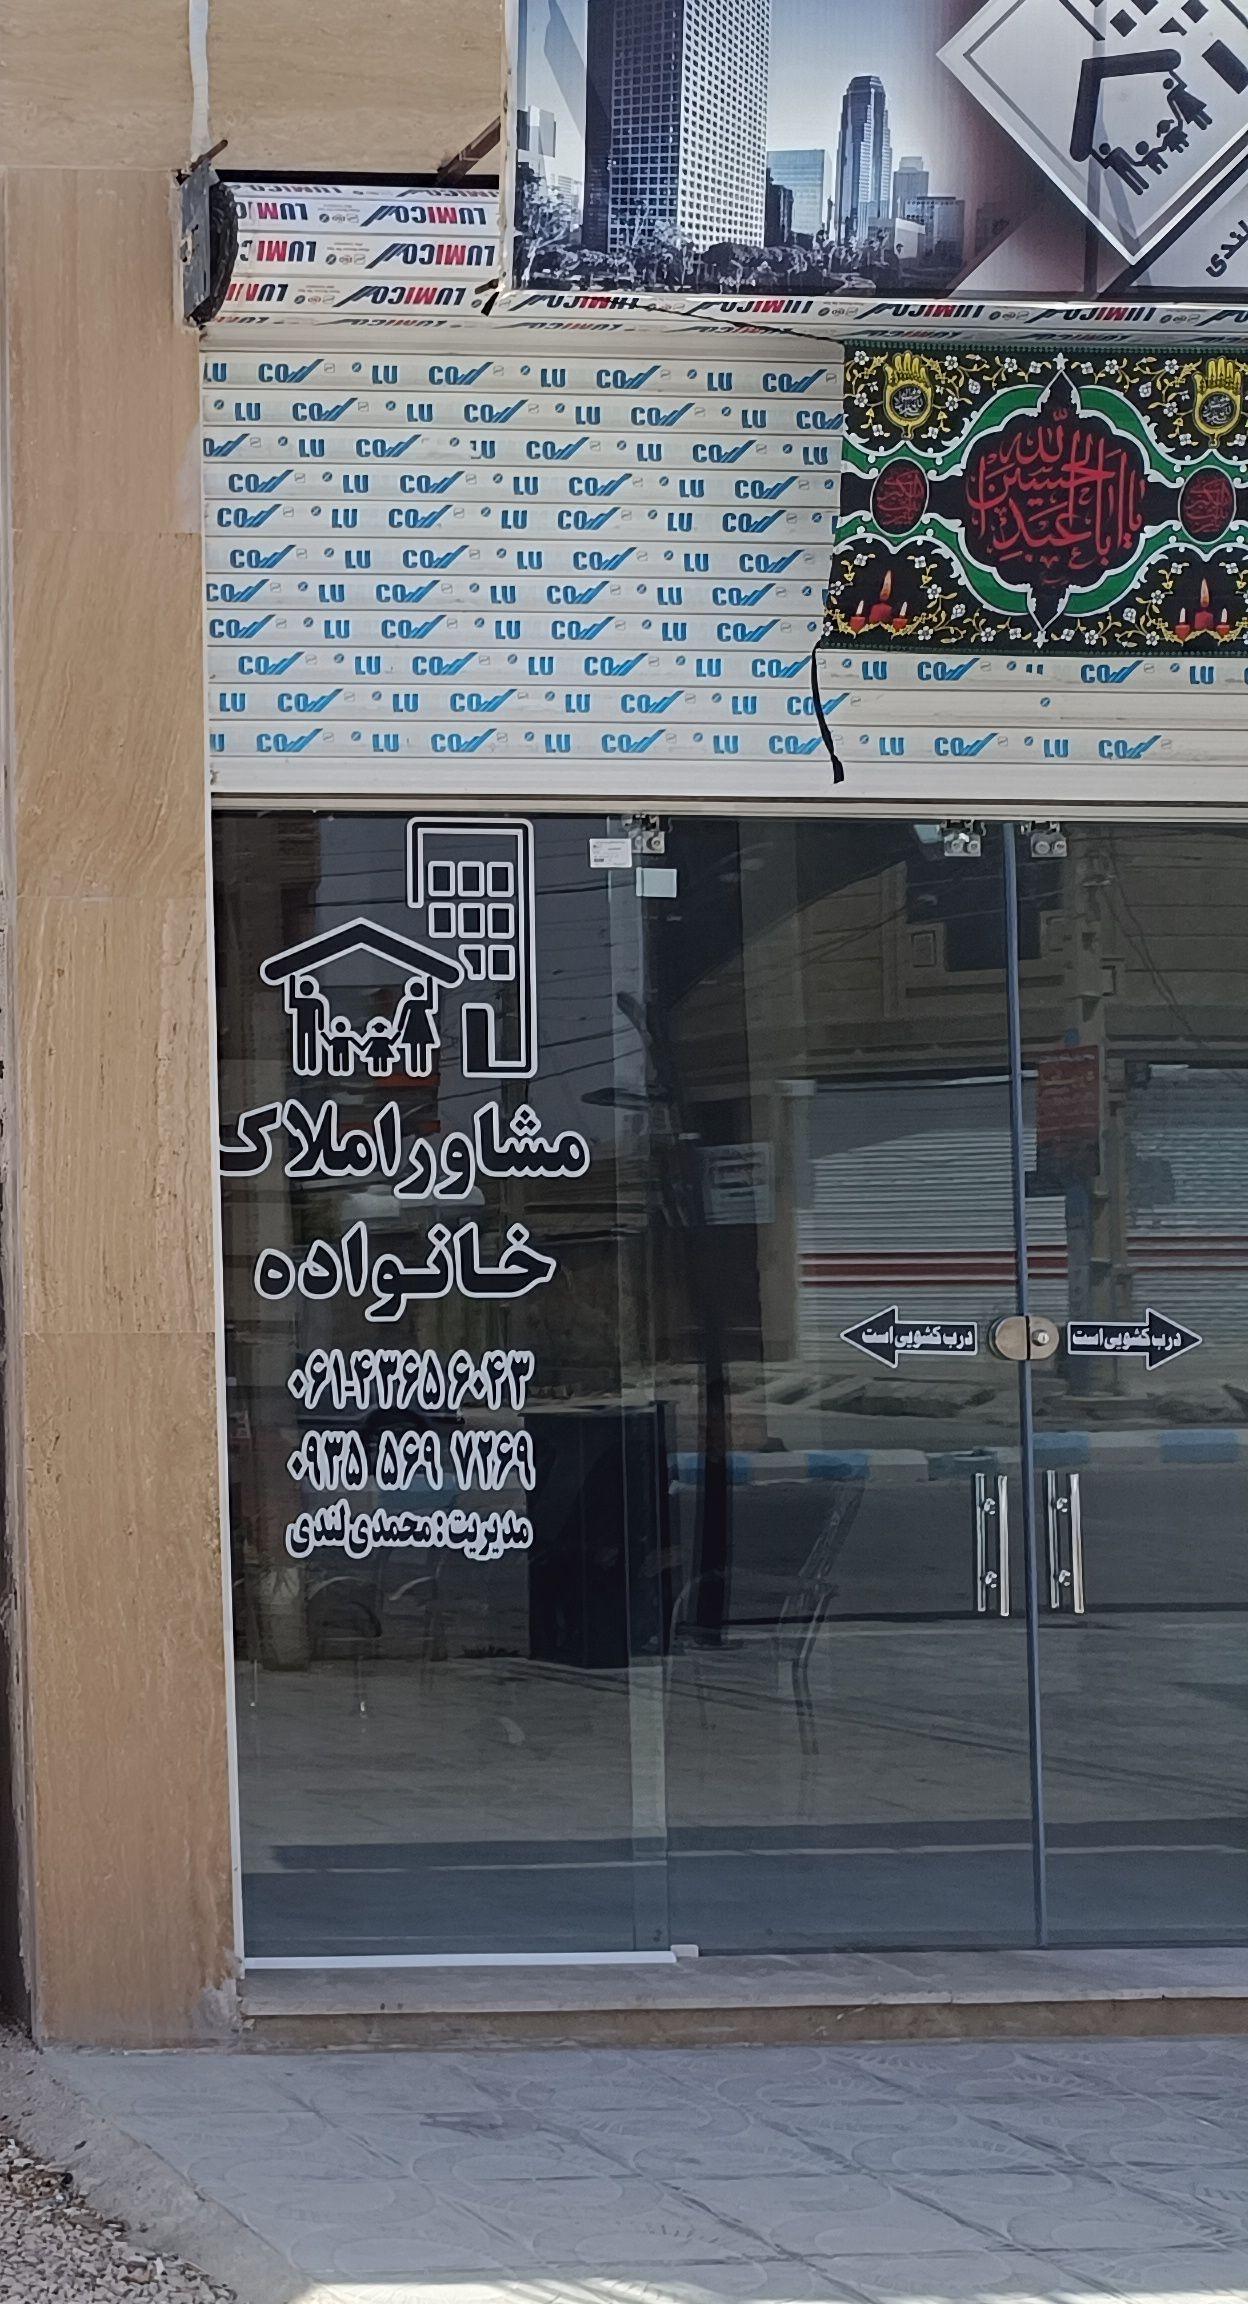 لندی
LUMICO
یا اباعبدالله الحسین
مشاور املاک
خانواده
۰۶۱-۴۳۶۵۶۰۴۳
۰۹۳۵ ۵۶۹ ۷۲۶۹
مدیریت : محمدی لندی
درب کشویی است
درب کشویی است